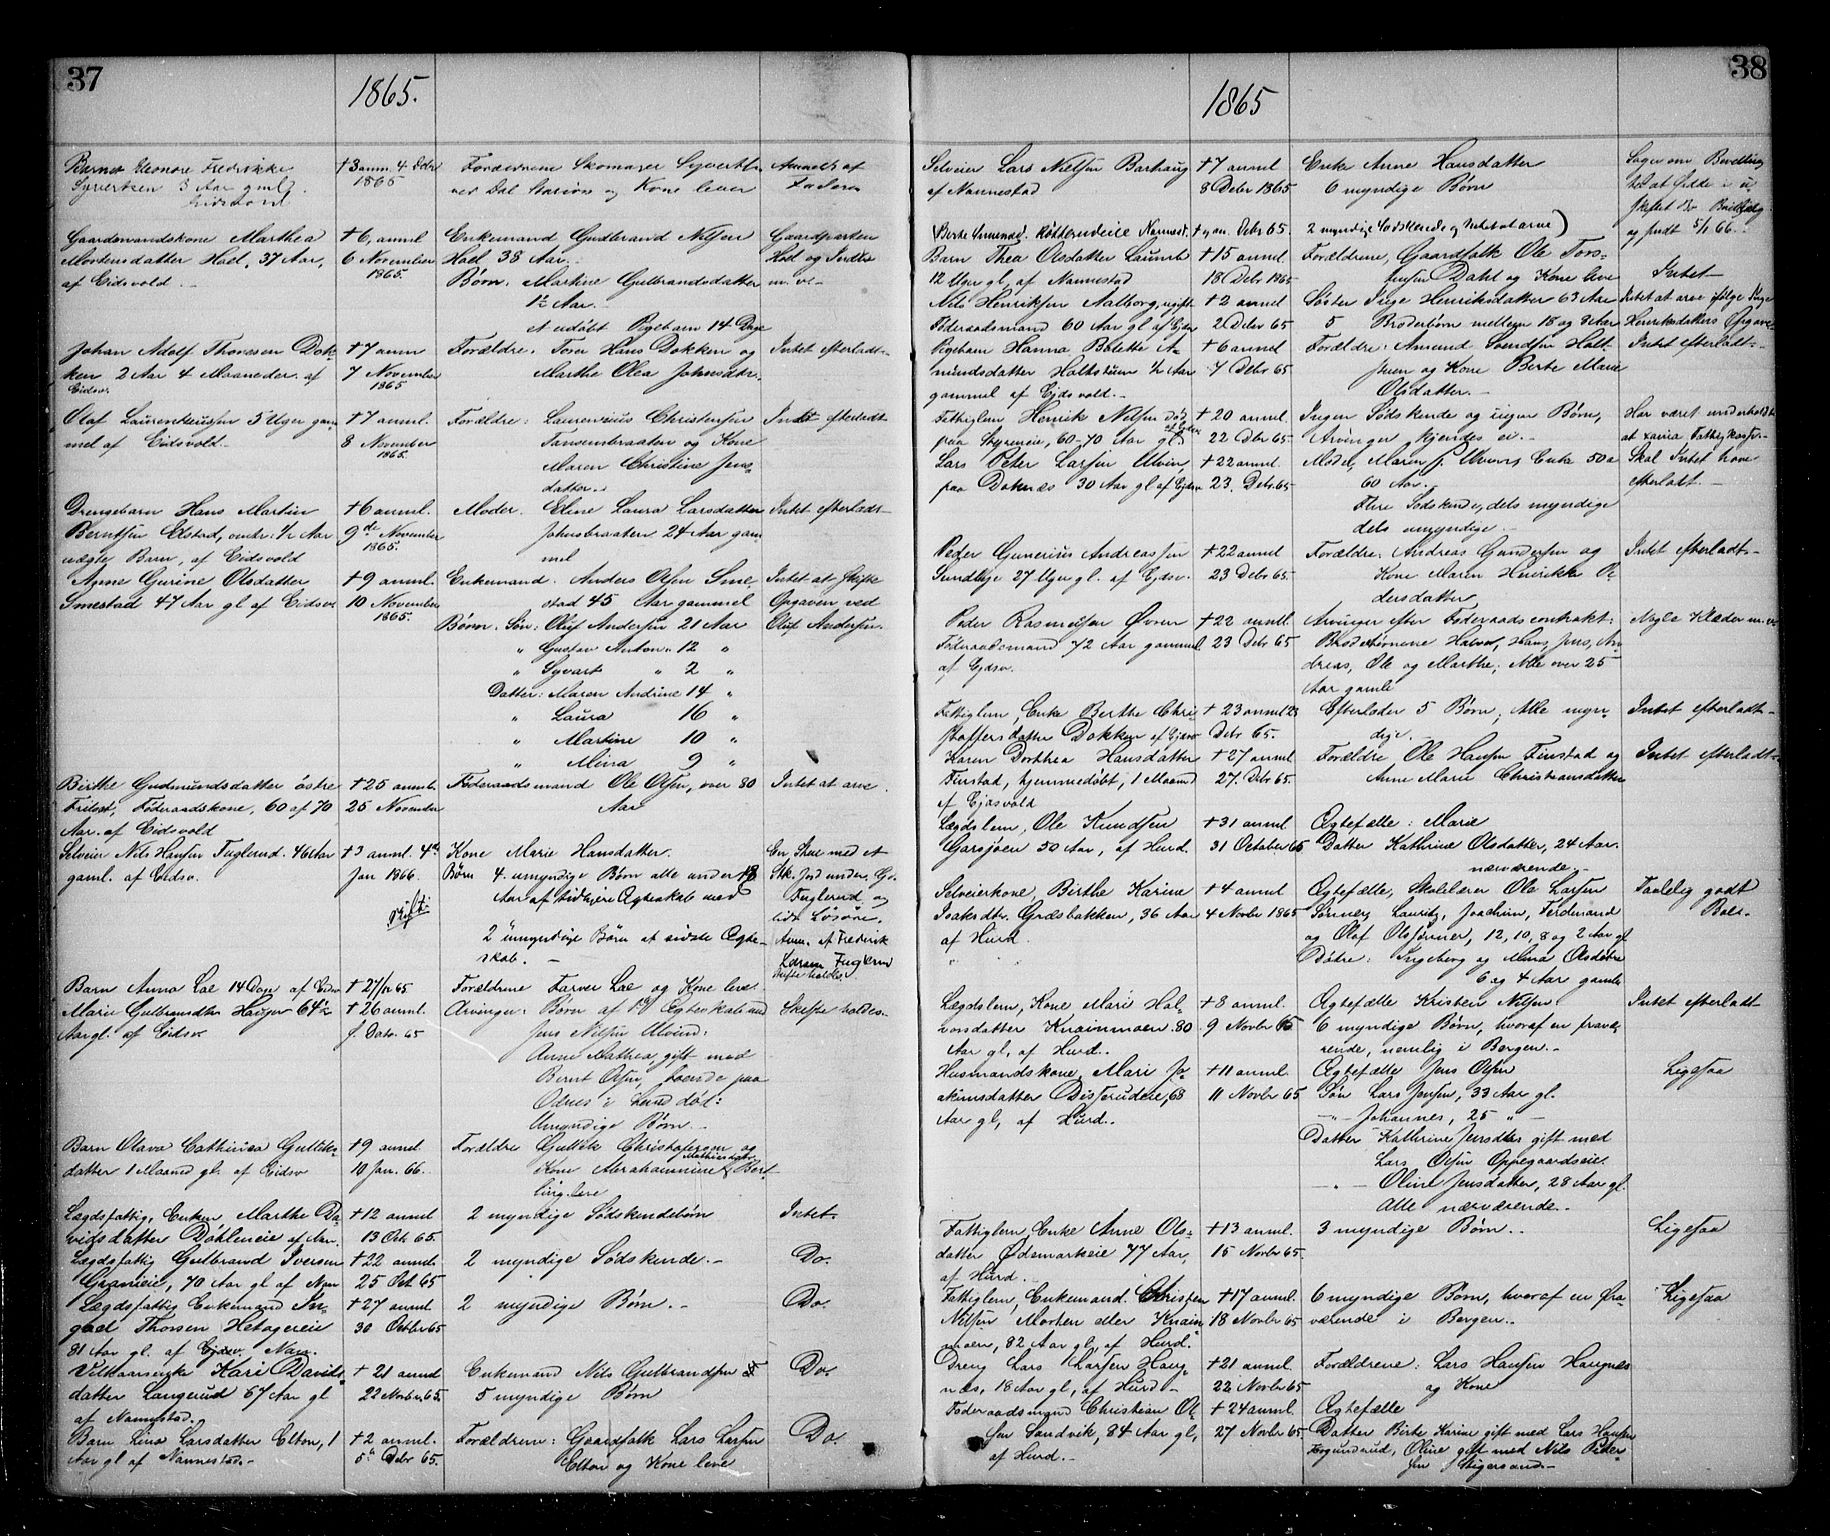 37
1865.
Barnet Eleonore Fredrikke
Syvertsen 3 Aar gml
Eidsvold
† 3 anm. 4 Debr
1865
Forældrene Skomager Syvertsen
og Kone lever
Anmeldt af
Faderen
Gaardmandskone Marthea
Mortensdatter Hoel, 37 Aar,
af Eidsvold
† 6, anml
6 November
1865.
Enkemand Gudbrand Nilsen
Hoel 38 Aar.
Børn: Martine Gulbrandsdatter
1½ Aar.
et udøbt Pigebarn 14 Dage
Gaardparten
Hoel og Indbo
m. v.
Johan Adolf Thoresen Dok-
ken 2 Aar 4 Maaneder. af
Eidsv.
† 7 anm
7 November
1865
Forældre. Tore Hans Dokken og
Marthe Olea Johnsdtr.
Intet efterladt.
Olaf Laurentiussen 5 Uger gam-
mel af Eidsvold.
† 7 anml.
8 November
1865.
Forældre: Laurensius Christensen
Jansenbraaten og Kone
Maren Christine Jens-
datter.
Intet efterladt
Drengebarn Hans Martin
Berntsen Elstad, omtr. ½ Aar
uægte Barn, af Eidsvold
† 6 anml.
9de November
1865.
Moder. Eline Laura Larsdatter
Johnsbraaten 24 Aar gam-
mel
Intet efterladt
Anne Gurine Olsdatter
Smestad 47 Aar gl af Eidsv.
† 9 anml.
10 November
1865.
Enkemand. Anders Olsen Sme-
stad 45 Aar gammel
Børn. Søn: Oluf Andersen 21 Aar
" Gustav Anton " 12 "
" Syvart " 2 "
Datter: Maren Andrine 14 "
" Laura 16 "
" Martine 10 "
" Mina 9 "
Intet at Skifte
Opgaven ved
Oluf Andersen.
Birthe Gudmundsdatter østre
Føderaadskone, 60 af 70
Aar. af Eidsvold
† 25 anml.
25 November
Føderaadsmand Ole Olsen, over 80
Aar
Intet at arve.
Selveier Nils Hansen Fuglerud. 46 Aar
gaml. af Eidsv.
† 3 anml. 4de
Jan 1866.
Skift:
Kone Marie Hansdatter.
Børn 4. umyndige Børn alle under 18
Aar af tidligere Ægteskab med
2 umyndige Børn af sidste Ægte-
skab. —
En Stue med et
Stk. Jord under Gd.
Fuglerud og
lidt Løsøre.
Anm. af Frederik
Larsen Fuglerud
Skifte holdes
Barn Anna Lae 14 Dage af Eidsv
† 27/12 65
Forældrene Farver Lae og Kone lever
Marie Gulbrandsdtr Hauger 64½
Aar gl. af Eidsv.
† 26 anml.
f. Dato. 65
Arvinger: Børn af 1ste Ægteskab med
Jens Nilsen Ulvind:
Anne Mathea, gift med
Bernt Olsen, boende paa
Odnes i Land død:
Umyndige Børn.
Skifte holdes.
Barn Olava Cathinca Gulliks-
datter 1 Maaned gl. af Eidsv
† 9 anml
10 Jan. 66.
Forældre Gullik Christofersen og
Kone Abrahammine Mathiesdatter Bert-
ling lever
Lægdsfattig, Enken Marthe Da-
vidsdatter Døhleneie af Nan.
† 12 anml
13 Octr 65.
2 myndige Sødskendebørn
Intet.
Lægdsfattig Gulbrand Iversen
Graneie, 70 Aar gl af Nan
† 22 anml
25 Oct 65
2 myndige Sødskende. –
Do.
Lægdsfattig Enkemand In-
gvel Thorsen Hetagereie
81 Aar gl. af Eidsv. Nan.
† 27 anml
30 Octbr 65
2 myndige Børn. –
Do.
Vilkaarsenke Kari Davids-
datter Langerud 67 Aar gl
af Nannestad.
† 21 anml
22 Novbr. 65.
Enkemand Nils Gulbrandsen
5 myndige Børn
Do.
Barn Lina Larsdatter Elton, 1
Aar gl af Nannestad. –
† 2 anml.
5te Debr 65.
Forældrene: Gaardfolk Lars Larsen
Elton og Kone leve
Do.
38
1865
Selveier Lars Nilsen Barhaug
af Nannestad
† 7 anml
8 Debr 1865
Enke Anne Hansdatter
6 myndige Børn
Søger om Bevilling
til at sidde i u-
skiftet Bo Bevilling
og sendt 5/1 66.
(Berte Amundsd. Røtterudeie Nannest. † 4 an. Debr 65. 2 myndige Sødskende og Intet at arve)
Barn Thea Olsdatter Laurul
12 Uger gl, af Nannestad
† 15 anml
18 Debr 1865
Forældrene, Gaardfolk Ole Tors-
tensen Dahl og Kone leve
Intet
Nils Henriksen Aalborg, ugift
Føderaadsmand 60 Aar gl af Ejdsv
† 2 anml
2 Debr 65
Søster Inge Henriksdatter 63 Aar
5 Broderbørn mellem 18 og 8 Aar
Intet at arve ifølge Inge
Henriksdatters Opgave.
Pigebarn Hanna Bolette A-
mundsdatter Holtstuen ½ Aar
gammel af Ejdsvold. –
† 6 anml
7 Debr 65
Forældre: Amund Svendsen Holt-
stuen og Kone Berte Marie
Olsdatter. –
Intet efterladt.
Fattiglem Henrik Nilsen død
paa Styreneie, 60–70 Aar gl
af Ejdsv
† 20 anml
22 Dbr 65
Ingen Sødskende og ingen Børn,
Arvinger kjendes ei. –
Har været underholdt
af Fattigkasse.
Lars Peter Larsen Ulvin,
paa Doknæs 30 Aar gl af Ejdsv
† 22 anml.
23. Debr 65
Moder, Maren P. Ulvins Enke 50 a
60 Aar. –
Flere Sødskende, dels myndige
dels umyndige. –
Skal Intet have
efterladt. –
Peder Gunerius Andreassen
Sundbye 27 Uger gl. af Ejdsv.
† 22 anml
23 Debr 65.
Forældre: Andreas Gundersen og
Kone Maren Henrikke Pe-
dersdatter
Intet efterladt. –
Peder Rasmussen Øvren
Føderaadsmand 72 Aar gammel
af Ejdsv.
† 22 anml
23 Debr 65
Arvinger efter Føderaadscontrakt:
Broderbørnene Halvor, Hans, Jens, An-
dreas, Ole og Marthe; Alle over 25
Aar gamle
Nogle Klæder m. v.
Fattiglem, Enke Berthe Chri-
stoffersdatter Dokken af Ejdsv
† 23 anml 23
Debr 65.
Efterlader 5 Børn; Alle myn-
dige. –
Intet efterladt –
Karen Dorthea Hansdatter
Finstad, hjemmedøbt, 1 Maaned
af Ejdsvold
† 27 anml
27. Debr 65.
Forældre Ole Hansen Finstad og
Anne Marie Christiansdatter
Intet efterladt –
Lægdslem, Ole Knudsen
Garsjøen 50 Aar, af Hurd.
† 31 anml
31 October 65
Ægtefælle: Marie
Datter Kathrine Olsdatter, 24 Aar.
nærværende. –
Selveierkone, Birthe Karine
Isaksdtr. Græsbakken, 36 Aar
af Hurd.
† 4 anml
4 Novbr 1865
Ægtefælle, Skolelærer Ole Larsen
Sønner Lauritz, Joachim, Ferdinand
og Olaf Olssønner, 12, 10, 8 og 2 Aar gl
Døtre: Ingeborg og Mina Olsdøtre
6 og 4 Aar gamle
Taalelig godt
Boet.
Lægdslem, Kone Mari Hal-
vorsdatter Knainmoen 80
Aar gl, af Hurd.
† 8 anml.
9 Novbr 65
Ægtefælle Kristen Nilsen
6 myndige Børn, hvoraf en fravæ-
rende, nemlig i Bergen. –
Intet efterladt
Husmandskone, Mari Jo-
akimsdatter Disterudeie, 68
Aar gl, af Hurd.
† 11 anml.
11 Novbr 65
Ægtefælle Jens Olsen
Søn Lars Jensen, 33 Aar gl.
–"– Johannes, 25 –"–
Datter Kathrine Jensdtr gift med
Lars Olsen Oppegaardseie.
–"– Oline Jensdatter, 28 Aar gl.
Alle nærværende. –
Ligesaa
Fattiglem, Enke Anne Ols-
datter Ødemarkeie 77 Aar,
af Hurd.
† 13 anml.
15 Novbr 65.
3 myndige Børn. –
Ligesaa
Fattiglem, Enkemand Christen
Nilsen Morten eller Knain-
moen, 82 Aar gl, af Hurd.
† 17 anml.
18 Novbr 65
6 myndige Børn, hvoraf en fra-
værende i Bergen. –
Ligesaa
Dreng Lars Larsen Haug-
næs, 18 Aar gl, af Hurd –
† 21 anml.
22 Novbr 65
Forældrene: Lars Hansen Haugnæs
og Kone
Føderaadsmand Christian Ol-
sen Sandvik, 84 Aar gl,
af Hurd. –
† 24 anml.
27 Novbr 65
Ægtefælle
Datter Birte Karine gift med Lars Hansen
Oline gift med Nils Peder-
sen Stigersand. –